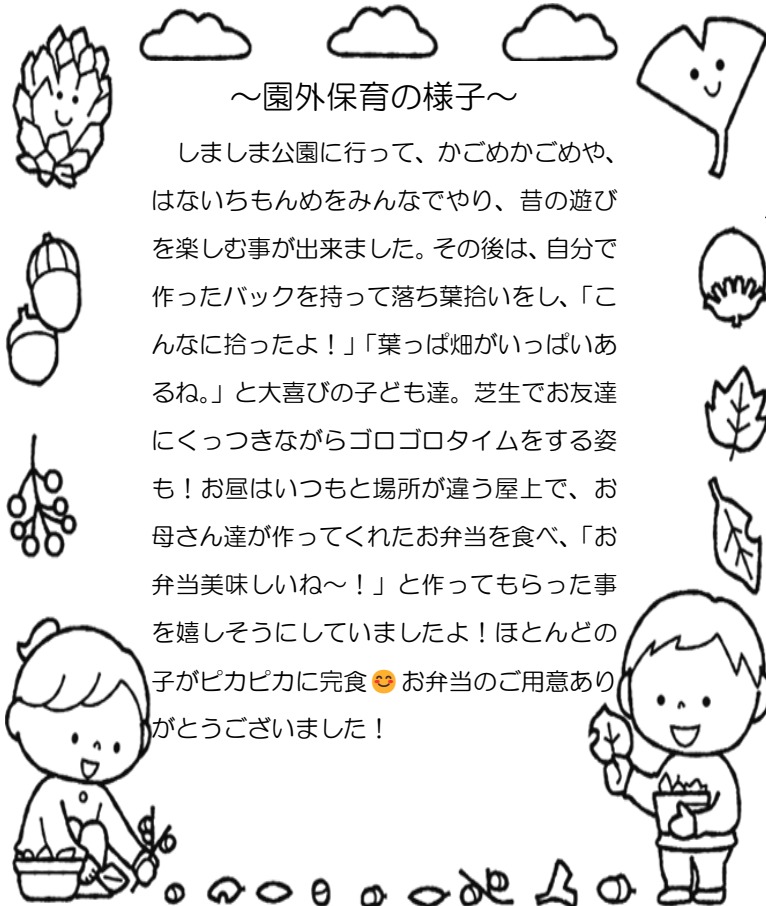 ～園外保育の様子～
　しましま公園に行って、かごめかごめや、
はないちもんめをみんなでやり、昔の遊び
を楽しむ事が出来ました。その後は、自分で
作ったバックを持って落ち葉拾いをし、「こ
んなに拾ったよ！」「葉っぱ畑がいっぱいあ
るね。」と大喜びの子ども達。芝生でお友達
にくっつきながらゴロゴロタイムをする姿
も！お昼はいつもと場所が違う屋上で、お
母さん達が作ってくれたお弁当を食べ、「お
弁当美味しいね～！」と作ってもらった事
を嬉しそうにしていましたよ！ほとんどの
子がピカピカに完食😊お弁当のご用意あり
がとうございました！